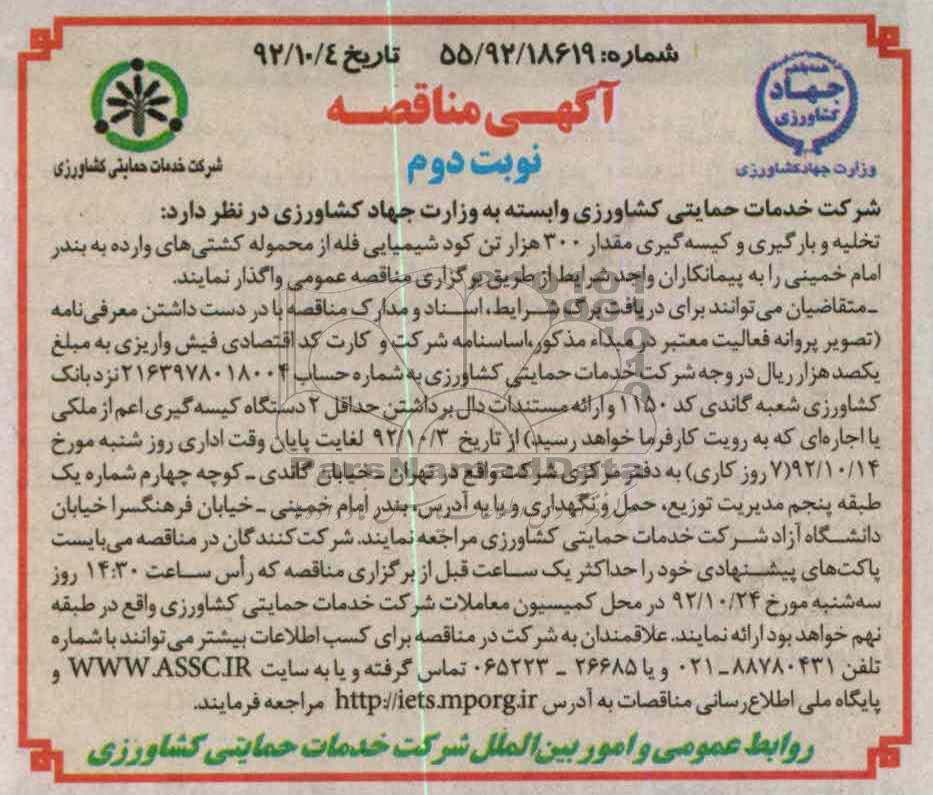 شماره: ۵۵/۹۲/۱۸۶۱۹ تاریخ ۹۲/۱۰/٤
همدلی
جهاد
کشاورزی
وزارت جهادکشاورزی
آگهی مناقصه
نوبت دوم
شرکت خدمات حمایتی کشاورزی
شرکت خدمات حمایتی کشاورزی وابسته به وزارت جهاد کشاورزی در نظر دارد:
تخلیه و بارگیری و کیسه گیری مقدار ۳۰۰ هزار تن کود شیمیایی فله از محموله کشتی‌های وارده به بندر
امام خمینی را به پیمانکاران واجد شرایط از طریق برگزاری مناقصه عمومی واگذار نمایند.
-متقاضیان می‌توانند برای دریافت برگ شرایط، اسناد و مدارک مناقصه با در دست داشتن معرفی‌نامه
(تصویر پروانه فعالیت معتبر در مبداء مذکور، اساسنامه شرکت و کارت کد اقتصادی فیش واریزی به مبلغ
یکصد هزار ریال در وجه شرکت خدمات حمایتی کشاورزی به شماره حساب ۲۱۶۳۹۷۸۰۱۸۰۰۴ نزد بانک
کشاورزی شعبه گاندی کد ۱۱۵۰ و ارائه مستندات دال بر داشتن حداقل ۲ دستگاه کیسه گیری اعم از ملکی
یا اجاره‌ای که به رویت کارفرما خواهد رسید) از تاریخ ۹۲/۱۰/۳ لغایت پایان وقت اداری روز شنبه مورخ
۹۲/۱۰/۱۴(۷ روز کاری) به دفتر مرکزی شرکت واقع در تهران - خیابان گاندی - کوچه چهارم شماره یک
طبقه پنجم مدیریت توزیع، حمل و نگهداری و یا به آدرس، بندر امام خمینی - خیابان فرهنگسرا خیابان
دانشگاه آزاد شرکت خدمات حمایتی کشاورزی مراجعه نمایند. شرکت‌کنندگان در مناقصه می‌بایست
پاکت‌های پیشنهادی خود را حداکثر یک ساعت قبل از برگزاری مناقصه که رأس ساعت ۱۴:۳۰ روز
سه‌شنبه مورخ ۹۲/۱۰/۲۴ در محل کمیسیون معاملات شرکت خدمات حمایتی کشاورزی واقع در طبقه
نهم خواهد بود ارائه نمایند. علاقمندان به شرکت در مناقصه برای کسب اطلاعات بیشتر می‌توانند با شماره
تلفن ۸۸۷۸۰۴۳۱-۰۲۱ و یا ۲۶۶۸۵ - ۰۶۵۲۲۳ تماس گرفته و یا به سایت WWW.ASSC.IR و
پایگاه ملی اطلاع‌رسانی مناقصات به آدرس http://iets.mporg.ir مراجعه فرمایند.
روابط عمومی و امور بین‌الملل شرکت خدمات حمایتی کشاورزی
ParsNamadData